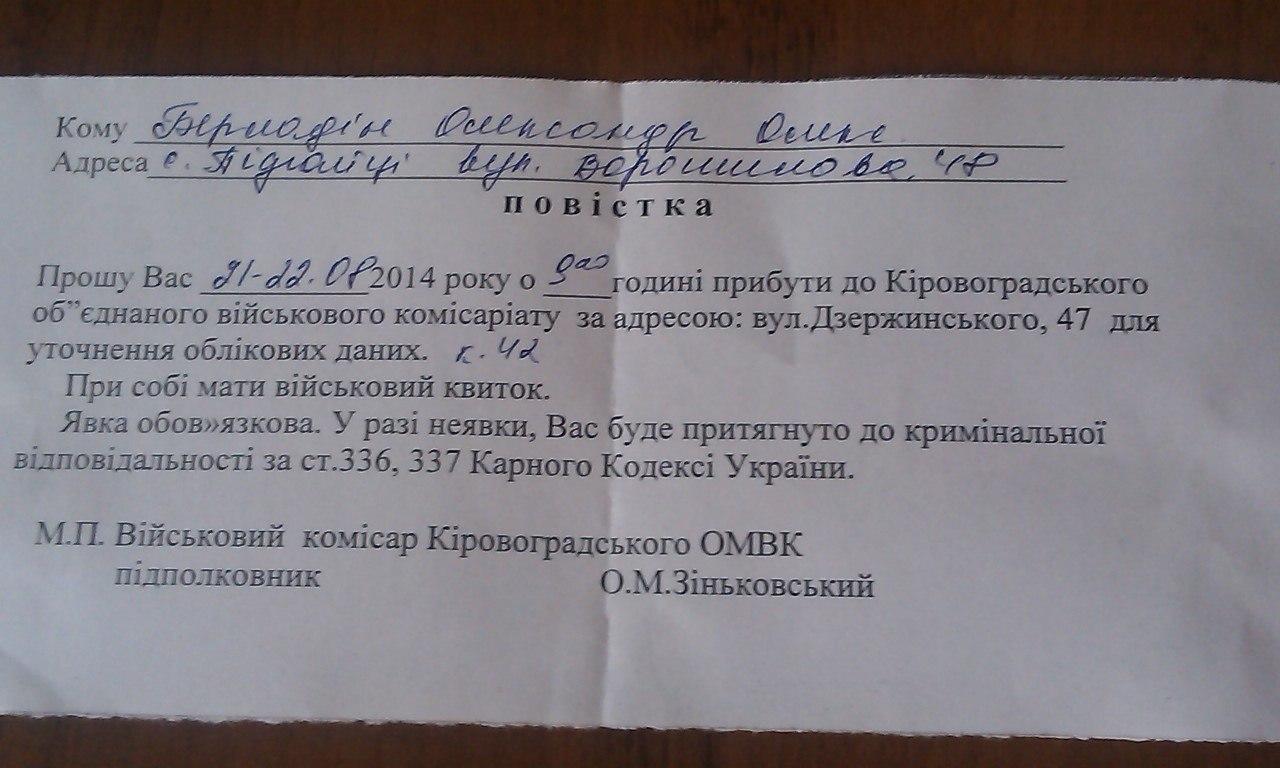 Кому Бермодін Олександр Олекс
Адреса с. Підгайці вул. Ворошилова, 48
повістка
Прошу Вас 21-22.08 2014 року о 9 00 годині прибути до Кіровоградського
об”єднаного військового комісаріату за адресою: вул.Дзержинського, 47 для
уточнення облікових даних. к. 42
При собі мати військовий квиток.
Явка обов»язкова. У разі неявки, Вас буде притягнуто до кримінальної
відповідальності за ст.336, 337 Карного Кодексі України.
М.П. Військовий комісар Кіровоградського ОМВК
підполковник О.М.Зіньковський